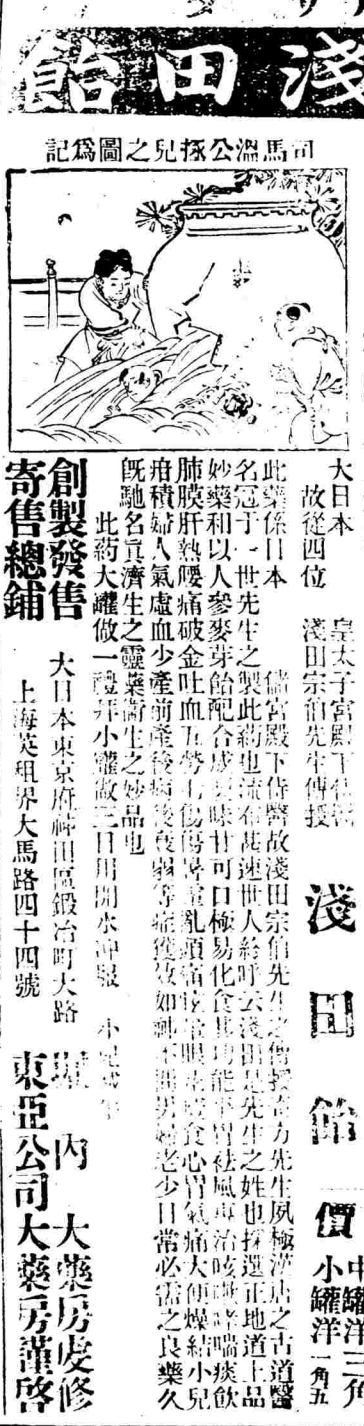 淺田飴
司馬溫公拯兒之圖爲記
大日本 皇太子宮殿下侍醫
故從四位 淺田宗伯先生傳授
淺田飴
價
中罐洋三角
小罐洋一角五
此藥係日本 儲宮殿下侍醫故淺田宗伯先生之傳授 方先生夙極漢唐之古道醫
名冠于一世先生之製此葯也流布甚速世人給呼云淺田是先生之姓也探選正地道上品
妙藥和以人參麥芽飴配合成 味甘可口極易化食其功能平胃祛風專治咳 哮喘痰飲
肺膜肝熱腰痛破金吐血五勞七傷傷 亂頭痛 眼 食心胃氣痛大便燥結小兒
疳積婦人氣虛血少產前產後病後衰弱等症獲效如神不論男婦老少日常必需之良藥久
既馳名眞濟生之靈藥衞生之妙品也
此葯大罐做一禮拜小罐做三日用開水冲服 小兒減半
創製發售 大日本東京府神田區鍛冶町大路 堀內大藥房虔修
寄售總鋪 上海英租界大馬路四十四號 東亞公司大藥房謹啓